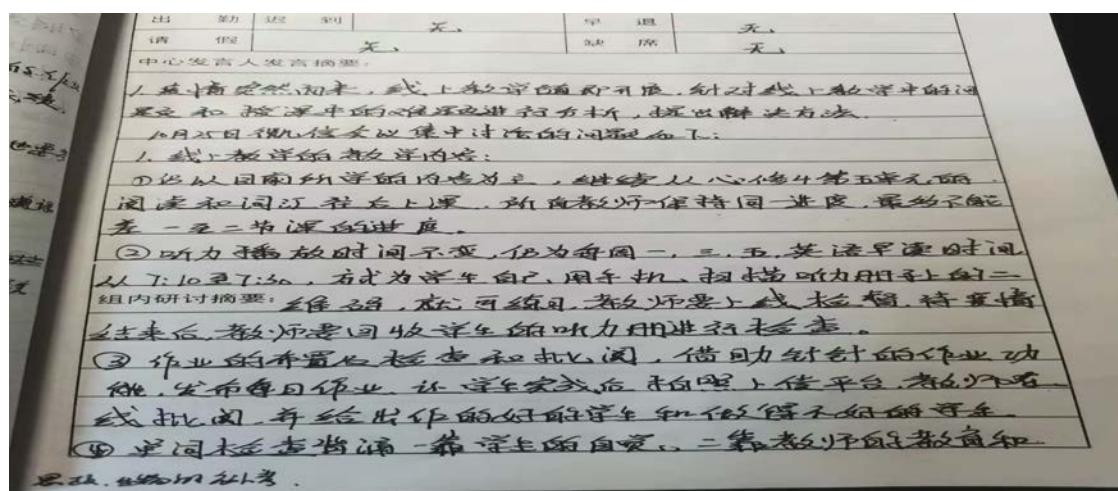 出 勤 迟 到 无、 早 退 无、
请 假 无、 缺 席 无、
中心发言人发言摘要:
1. 疫情突然而来,线上教学随即开展,针对线上教学中的问
题和授课中的难题进行分析,提出解决方法.
10月25日微信会议集中讨论的问题如下:
1. 线上教学的教学内容:
①仍以目前所学的内容为主,继续从必修4第五单元的
阅读和词汇往后上课,所有教师保持同一进度,最多不能
差一至二节课的进度。
②听力播放时间不变,仍为每周一、三、五,英语早读时间
从7:10至7:30,方式为学生自己用手机,扫描听力册子上的二
组内研讨摘要:维码,就可练习,教师要上线检督,待疫情
结束后,教师要回收学生的听力册进行检查。
③作业的布置及检查和批阅,借助钉钉的作业功
能,发布每日作业,让学生完成后拍照上传平台,教师在
线批阅,并给出作的好的学生和做得不好的学生
④单词检查背诵一靠学生的自觉,二靠教师的教育和